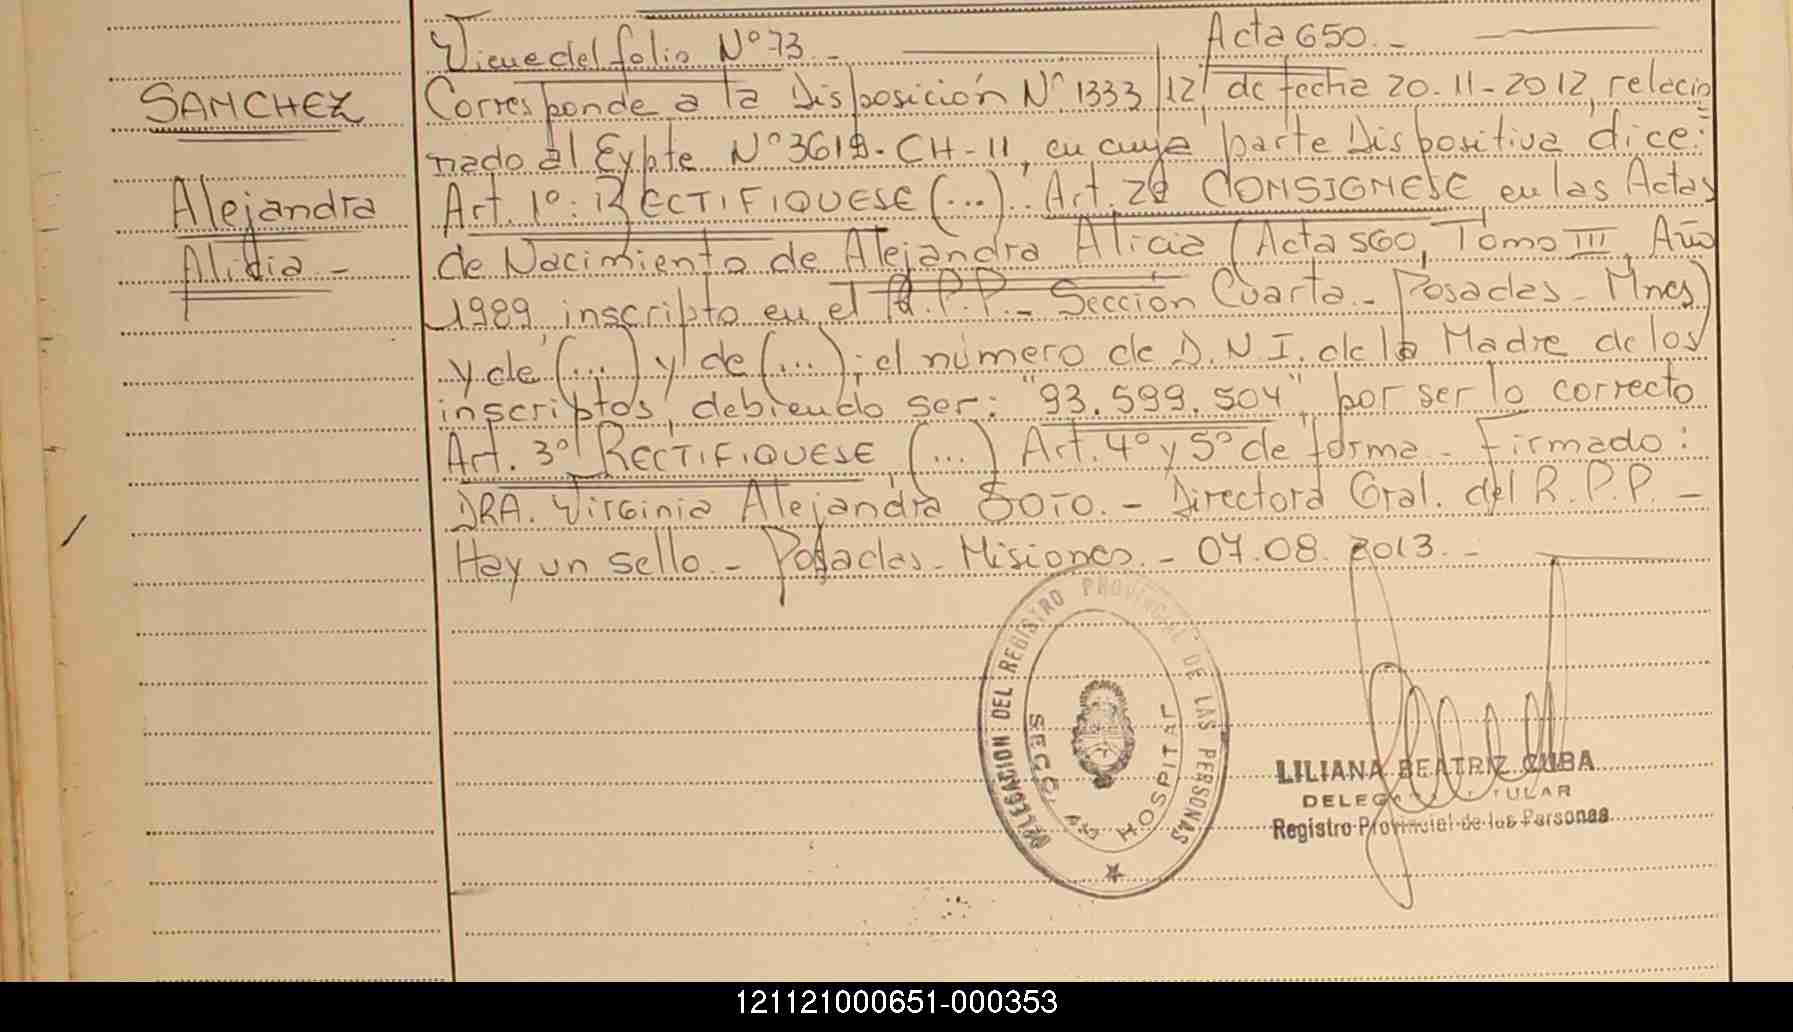 Viene del folio Nº 73.- Acta 650.-
SANCHEZ
Alejandra
Alicia -
Corresponde a la Disposición Nº 1333/12 de fecha 20-11-2012, relacio
nado al Expte Nº 3619-CH-11, en cuya parte Dispositiva dice:
Art. 1º: RECTIFIQUESE (...). Art. 2º CONSIGNESE en las Actas
de Nacimiento de Alejandra Alicia (Acta 560, Tomo III, Año
1989 inscripto en el R.P.P.- Sección Cuarta - Posadas - Mnes)
y de (...) y de (...); el número de D.N.I. de la Madre de los
inscriptos, debiendo ser: "93.599.504", por ser lo correcto
Art. 3º RECTIFIQUESE, (...) Art. 4º y 5º de forma - Firmado:
DRA. Virginia Alejandra Soto. - Directora Gral. del R.P.P. -
Hay un sello. - Posadas - Misiones. - 07.08.2013. -
DELEGACION DEL REGISTRO PROVINCIAL DE LAS PERSONAS
SECC. HOSPITAL
LILIANA BEATRIZ CUBA
DELEGADA TITULAR
Registro Provincial de las Personas
121121000651-000353